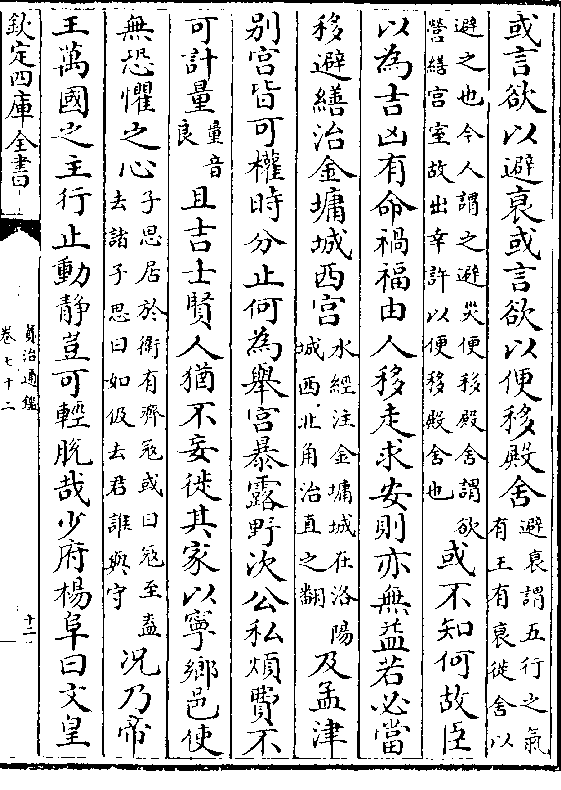 或言欲以避衰或言欲以便移殿舍避衰謂五行之氣有王有衰徙舍以
避之也今人謂之避災便移殿舍謂欲營繕宮室故出幸許以便移殿舍也或不知何故臣
以為吉凶有命禍福由人移走求安則亦無益若必當
移避繕治金墉城西宮水經注金墉城在洛陽城西北角治直之翻及孟津
别宮皆可權時分止何為舉宮暴露野次公私煩費不
可計量量音良且吉士賢人猶不妄徙其家以寧鄉邑使
無恐懼之心子思居於衛有齊宼或曰宼至盍去諸子思曰如伋去君誰與守況乃帝
王萬國之主行止動靜豈可輕脱哉少府楊阜曰文皇
欽定四庫全書
資治通鑑
卷七十二
十二